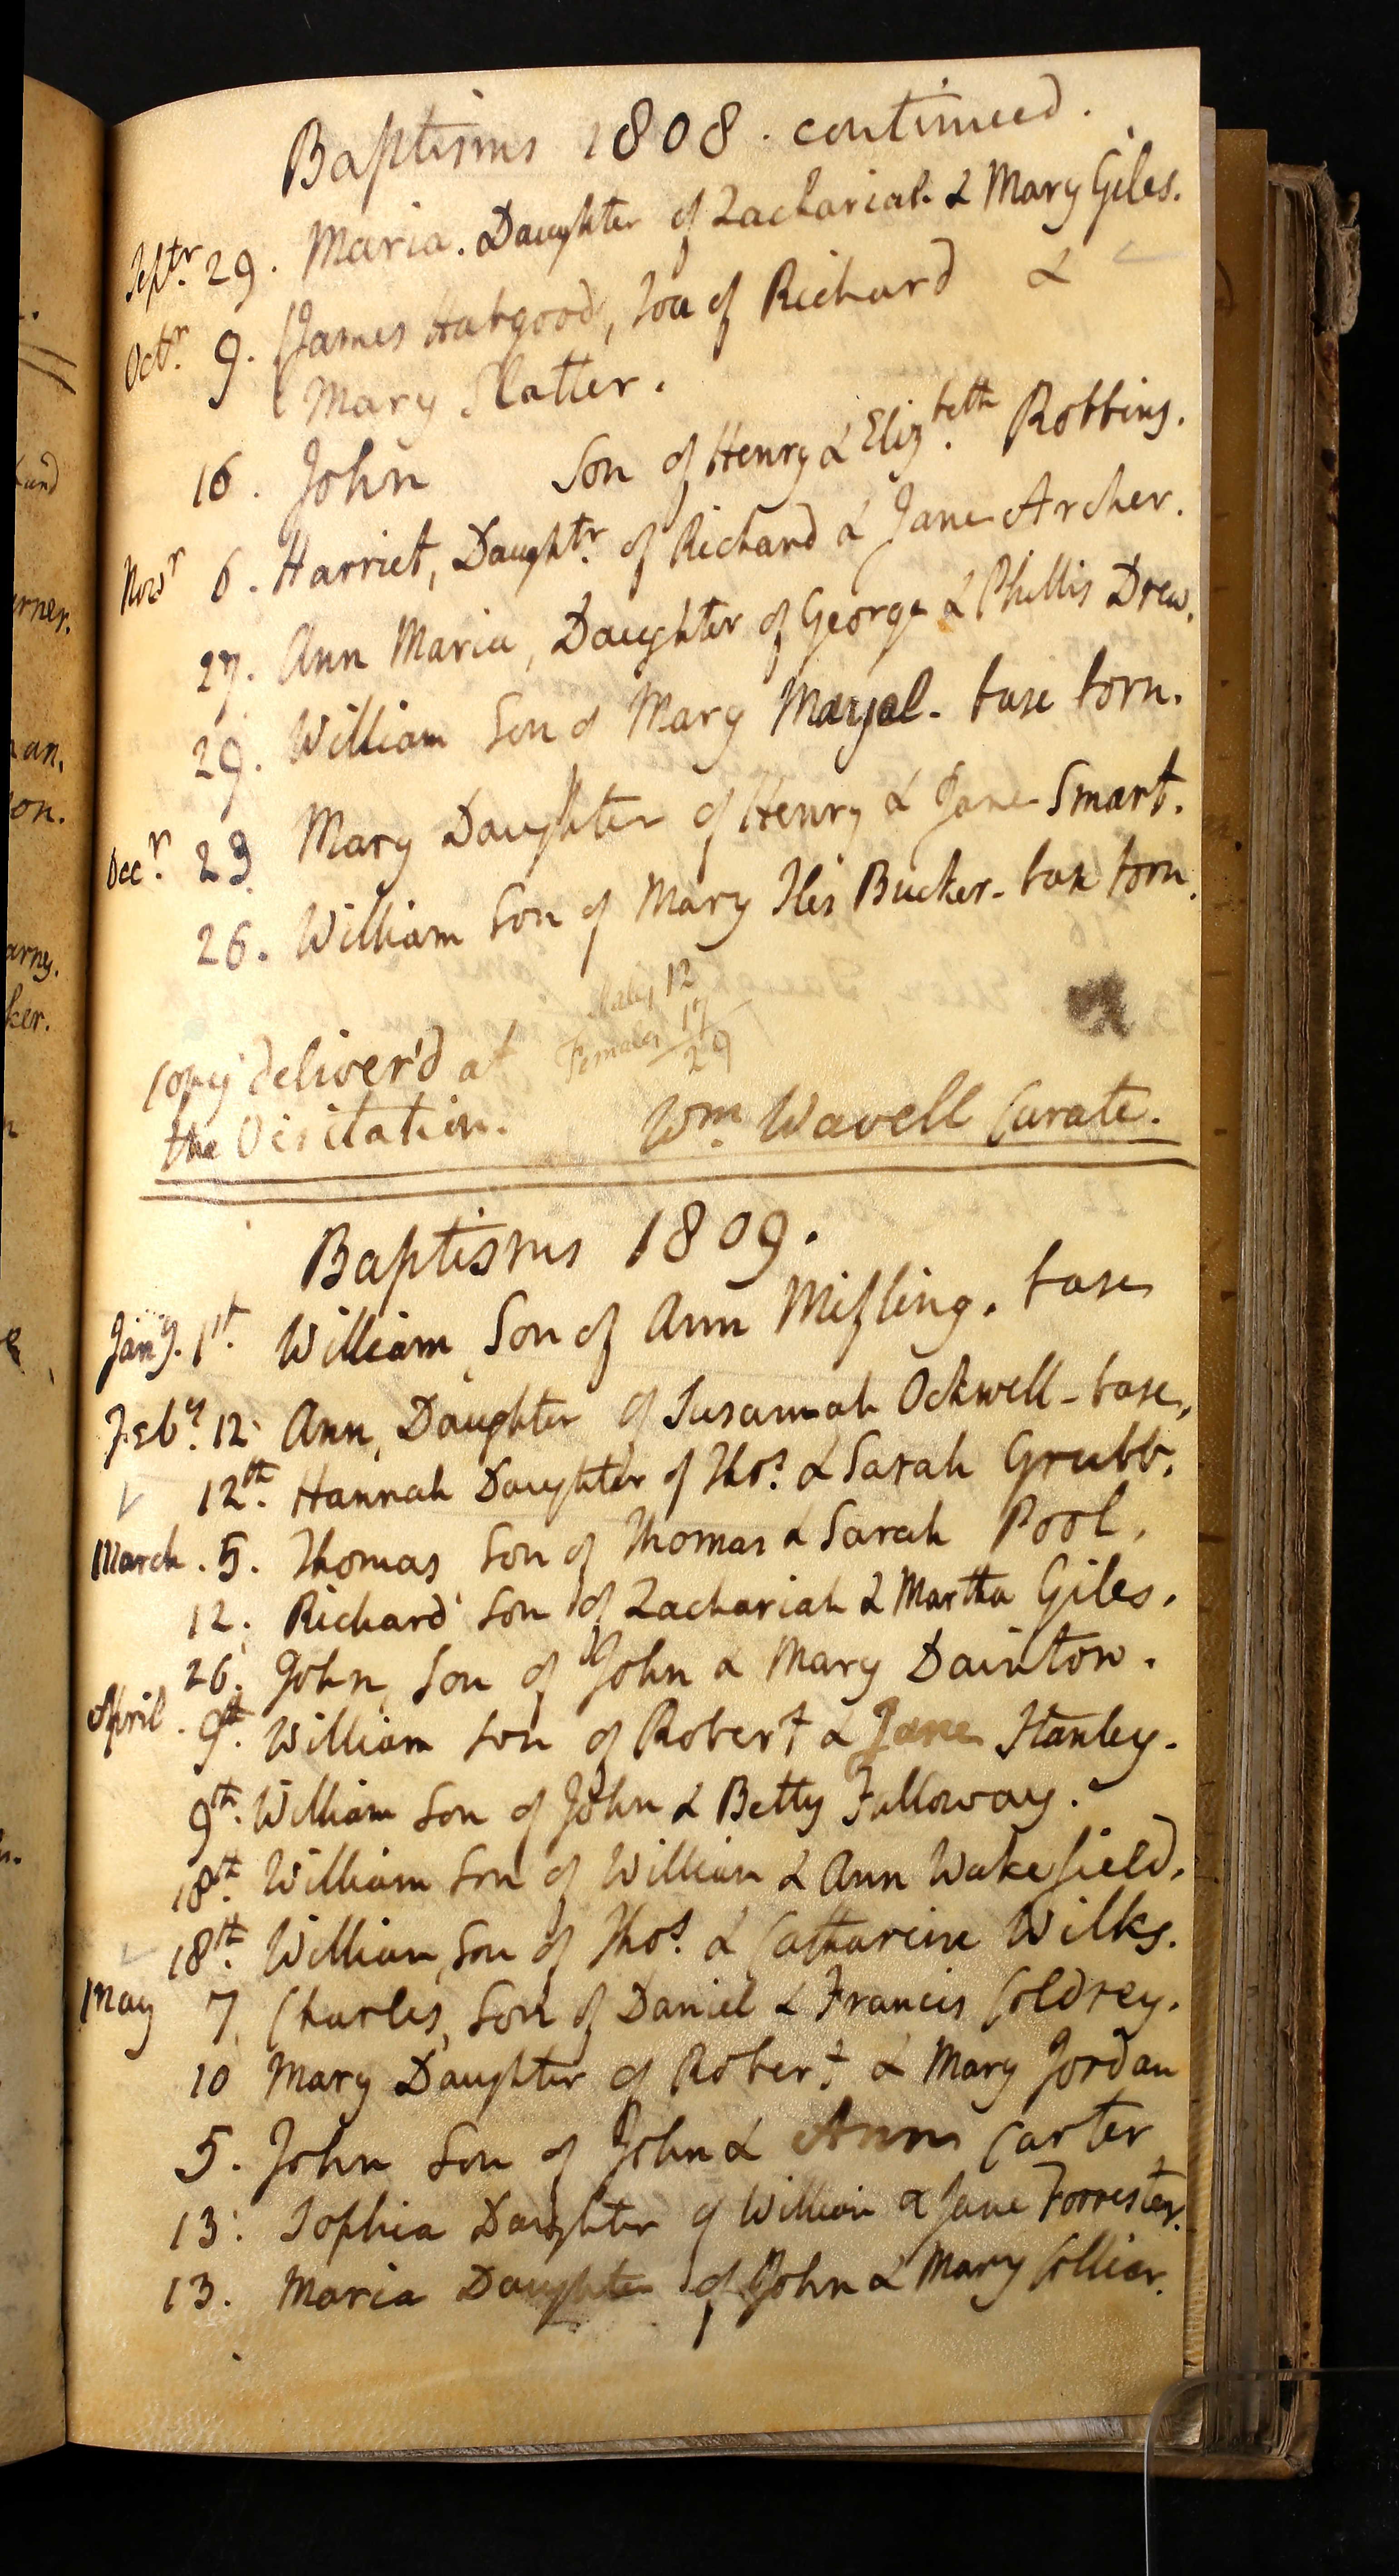 Baptisms 1808. continued.
Septr 29. Maria. Daughter of Zachariah & Mary Giles.
Octr. 9. James Habgood, Son of Richard &
Mary Slatter.
16. John Son of Henry & Elizbeth. Robbins.
Novr 6. Harriet, Daughtr. of Richard & Jane Archer.
27. Ann Maria, Daughter of George & Phillis Drew.
29. William Son of Mary Mayal - base born.
Decr. 23 Mary Daughter of Henry & Jane Smart.
26. William Son of Mary Iles Bucker - base born.
Males 12
Females 17
29
Copy deliver'd at
the Visitation.
Wm. Wavell Curate.
Baptisms 1809.
Jany. 1st. William, Son of Ann Mifling. base
Feby. 12 Ann, Daughter of Susannah Ockwell - base.
12th. Hannah Daughter of Thos. & Sarah Grubb.
March. 5. Thomas Son of Thomas & Sarah Pool.
12. Richard Son of Zachariah & Martha Giles.
26. John, Son of John & Mary Dainton.
April. 9th. William Son of Robert & Jane Stanley.
9th. William Son of John & Betty Falloway.
18th. William Son of William & Ann Wakefield.
18th. William, Son of Thos. & Catharine Wilks.
May 7. Charles, Son of Daniel & Francis Coldrey.
10 Mary Daughter of Robert & Mary Jordan
5. John Son of John & Ann Carter
13. Sophia Daughter of William & Jane Forrester.
13. Maria Daughter of John & Mary Collier.